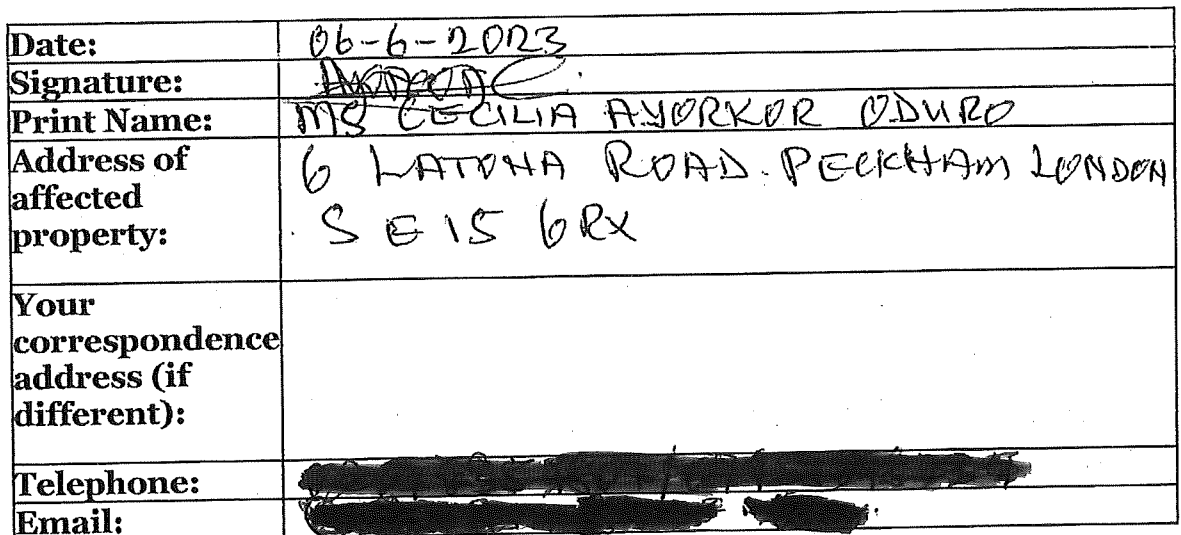 Date: 06-6-2023
Signature:
Print Name: MS CECILIA AYORKOR ODURO
Address of affected property: 6 LATONA ROAD. PECKHAM LONDON
SE15 6RX
Your
correspondence
address (if
different):
Telephone:
Email: